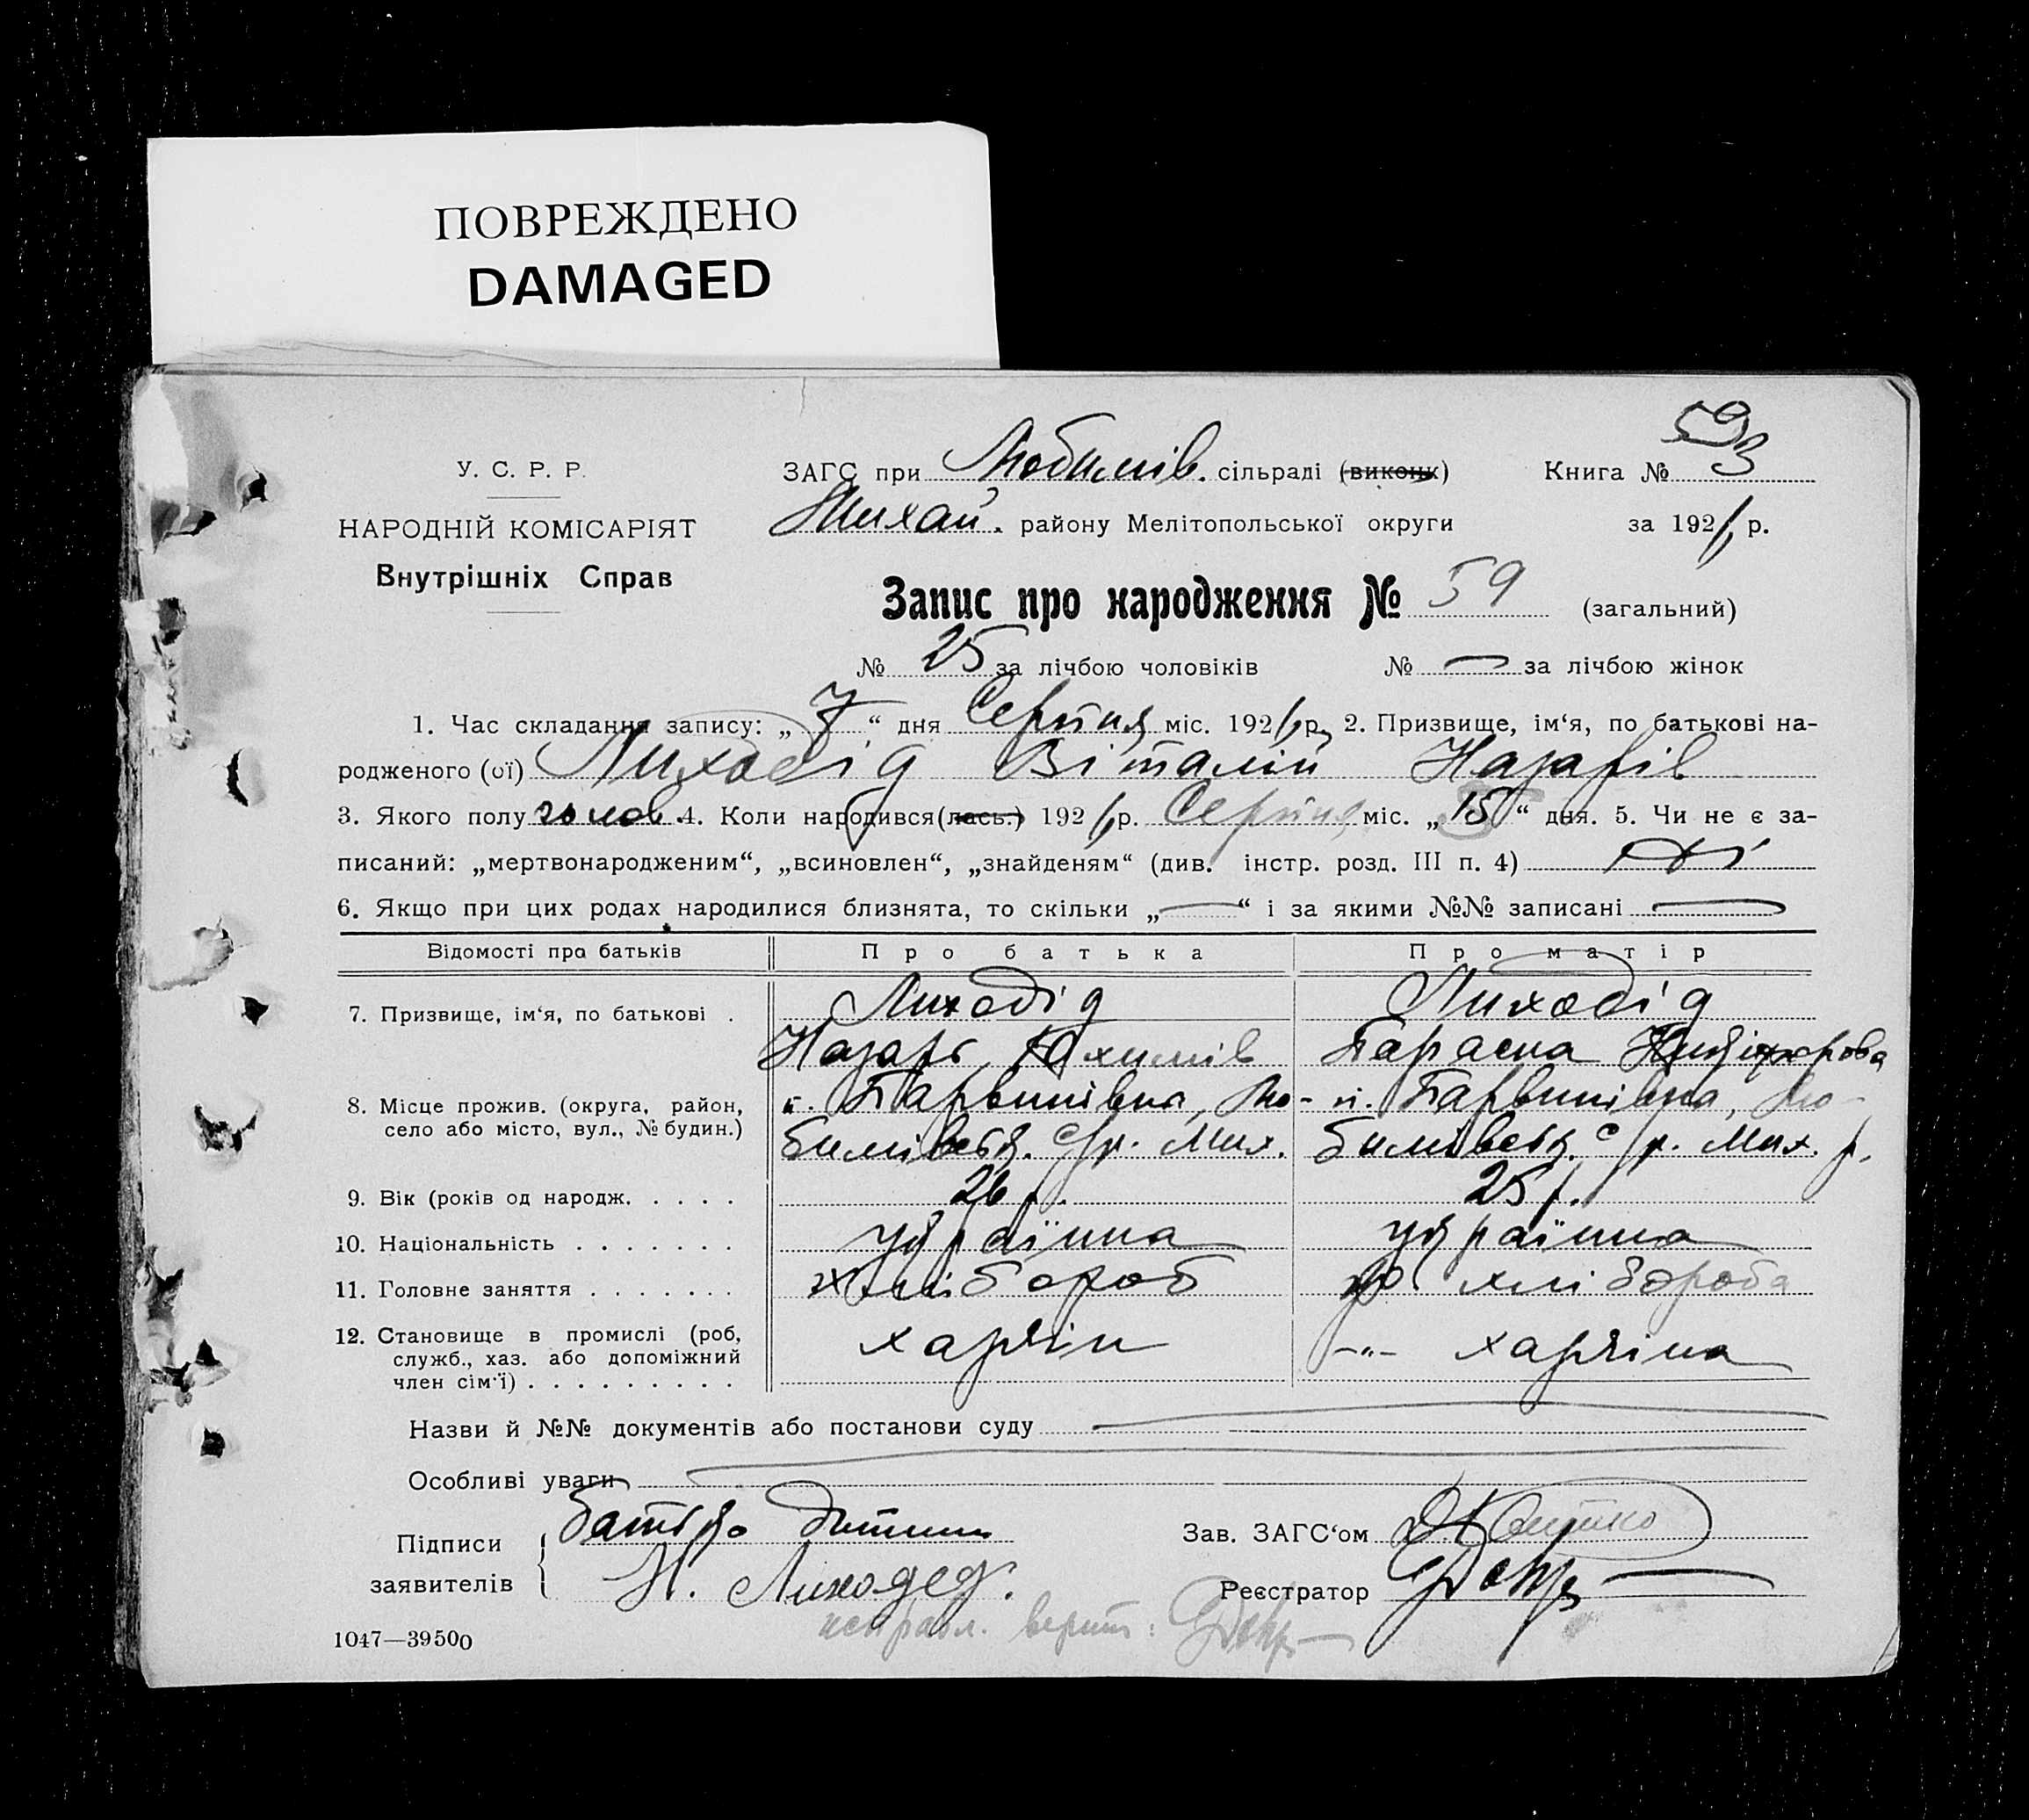 ПОВРЕЖДЕНО
DAMAGED
593
У. С. Р. Р.
ЗАГС при Любимів. сільраді (виконк) Книга №
НАРОДНІЙ КОМІСАРІЯТ
Михай. району Мелітопольської округи за 192 р.
Внутрішніх Справ
Запис про народження № 59 (загальний)
№ 25 за лічбою чоловіків № — за лічбою жінок
1. Час складання запису: „7“ дня Серпня міс. 192 р. 2. Призвище, ім‘я, по батькові на-
родженого (ої) Лиходід Віталій Назарів
3. Якого полу чолов. 4. Коли народився(лась.) 192 р. Серпня міс. „15“ дня. 5. Чи не є за-
писаний: „мертвонародженим“, „всиновлен“, „знайденям“ (див. інстр. розд. III п. 4) Ні
6. Якщо при цих родах народилися близнята, то скільки „—“ і за якими №№ записані —
Відомості про батьків Про батька Про матір
7. Призвище, ім‘я, по батькові . Лиходід Лиходід
Назарь Юхимів Параска
8. Місце прожив. (округа, район, с. Барвинівка, Лю- с. Барвинівка, Лю-
село або місто, вул., № будин.) бимівськ. с/р. Мих. бимівськ. с/р. Мих. р.
9. Вік (років од народж. . . . . 26 р. 25 р.
10. Національність . . . . . . . україниа україниа
11. Головне заняття . . . . . . . хлібороб хлібороба
12. Становище в промислі (роб, харчін -„- харчіна
служб., хаз. або допоміжний
член сім‘ї) . . . . . . . . .
Назви й №№ документів або постанови суду —
Особливі уваги —
Підписи батько дитини Зав. ЗАГС‘ом
заявителів Н. Лиходед. Реєстратор
исправл. верит:
1047—39500